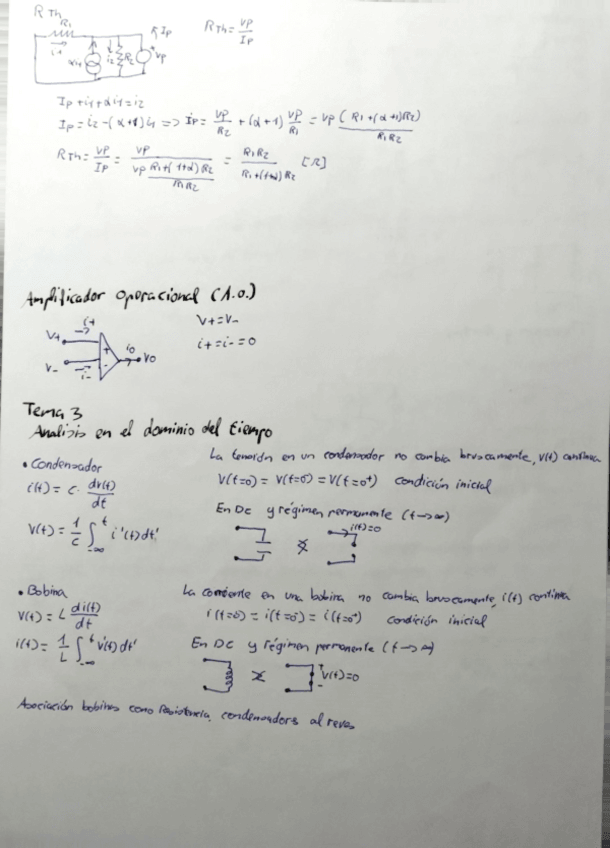 R Th
R1
i1
αi1
i2
R2
Ip
Vp
RTh = Vp/Ip
Ip + i1 + αi1 = i2
Ip = i2 - (α+1) i1 => Ip = Vp/R2 + (α+1) Vp/R1 = Vp (R1 + (α+1)R2)/R1R2
RTh = Vp/Ip = Vp/(Vp (R1+(1+α)R2)/R1R2) = R1R2/(R1+(1+α)R2) [Ω]
Amplificador Operacional (A.O.)
V+
i+
V-
i-
io
Vo
V+ = V-
i+ = i- = 0
Tema 3
Analisis en el dominio del tiempo
• Condensador
i(t) = C · dv(t)/dt
V(t) = 1/C ∫_-∞^t i'(t) dt'
La tensión en un condensador no cambia bruscamente, V(t) continua
V(t=0) = V(t=0-) = V(t=0+) condición inicial
En DC y régimen permanente (t→∞)
i(t)=0
• Bobina
V(t) = L di(t)/dt
i(t) = 1/L ∫_-∞^t v'(t) dt'
La corriente en una bobina no cambia bruscamente, i(t) continua
i(t=0) = i(t=0-) = i(t=0+) condición inicial
En DC y régimen permanente (t→∞)
V(t)=0
Asociación bobinas como Resistencia, condensadores al reves